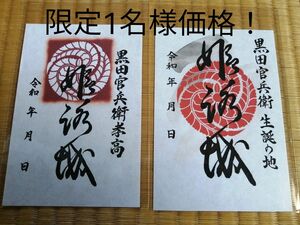 限定1名様価格！
黒田官兵衛孝高
姫路城
令和 年 月 日
黒田官兵衛 生誕の地
姫路城
令和 年 月 日